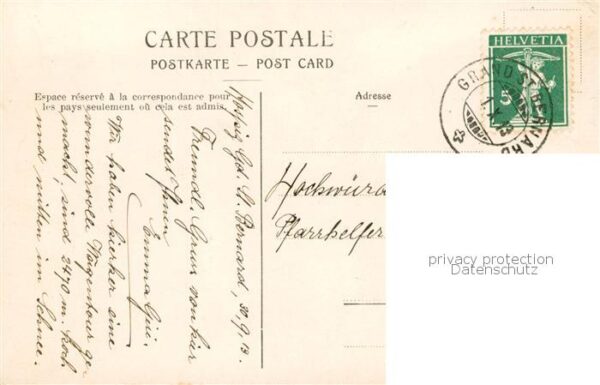 CARTE POSTALE
POSTKARTE — POST CARD
Espace réservé à la correspondance pour
les pays seulement où cela est admis.
Adresse
HELVETIA
5
GRAND ST BERNARD
Hospiz Gd. St. Bernard, 30/9 13
Freundl. Gruss von hier
sendet Ihnen
Emma
Wir haben hierher eine
wundervolle Wagentour ge-
macht, sind 2470 m. hoch
und mitten im Schnee.
Hochwürd
Pfarrhelfer
privacy protection
Datenschutz